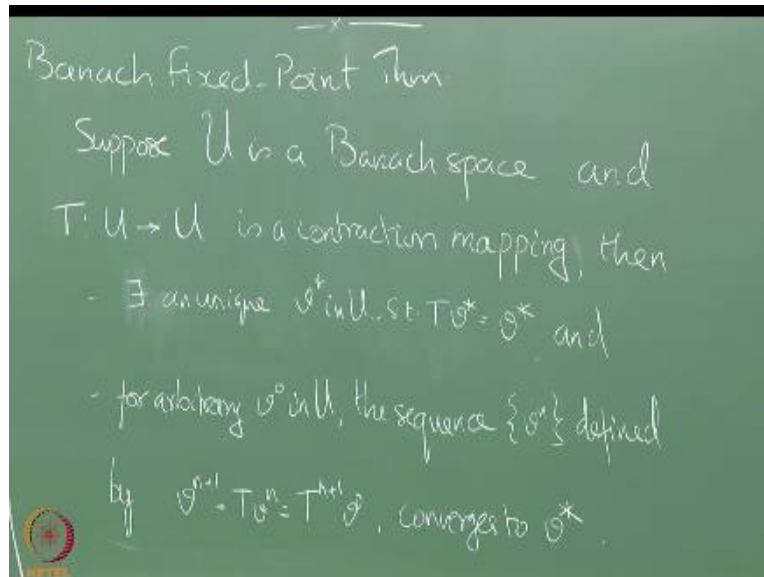 Banach Fixed-Point Thm.
Suppose U is a Banach space and
T: U → U is a contraction mapping, then
- ∃ an unique v* in U s.t. Tv* = v* and
- for arbitrary v⁰ in U, the sequence {vⁿ} defined
by vⁿ⁺¹ = Tvⁿ = Tⁿ⁺¹v⁰, converges to v*.
NPTEL